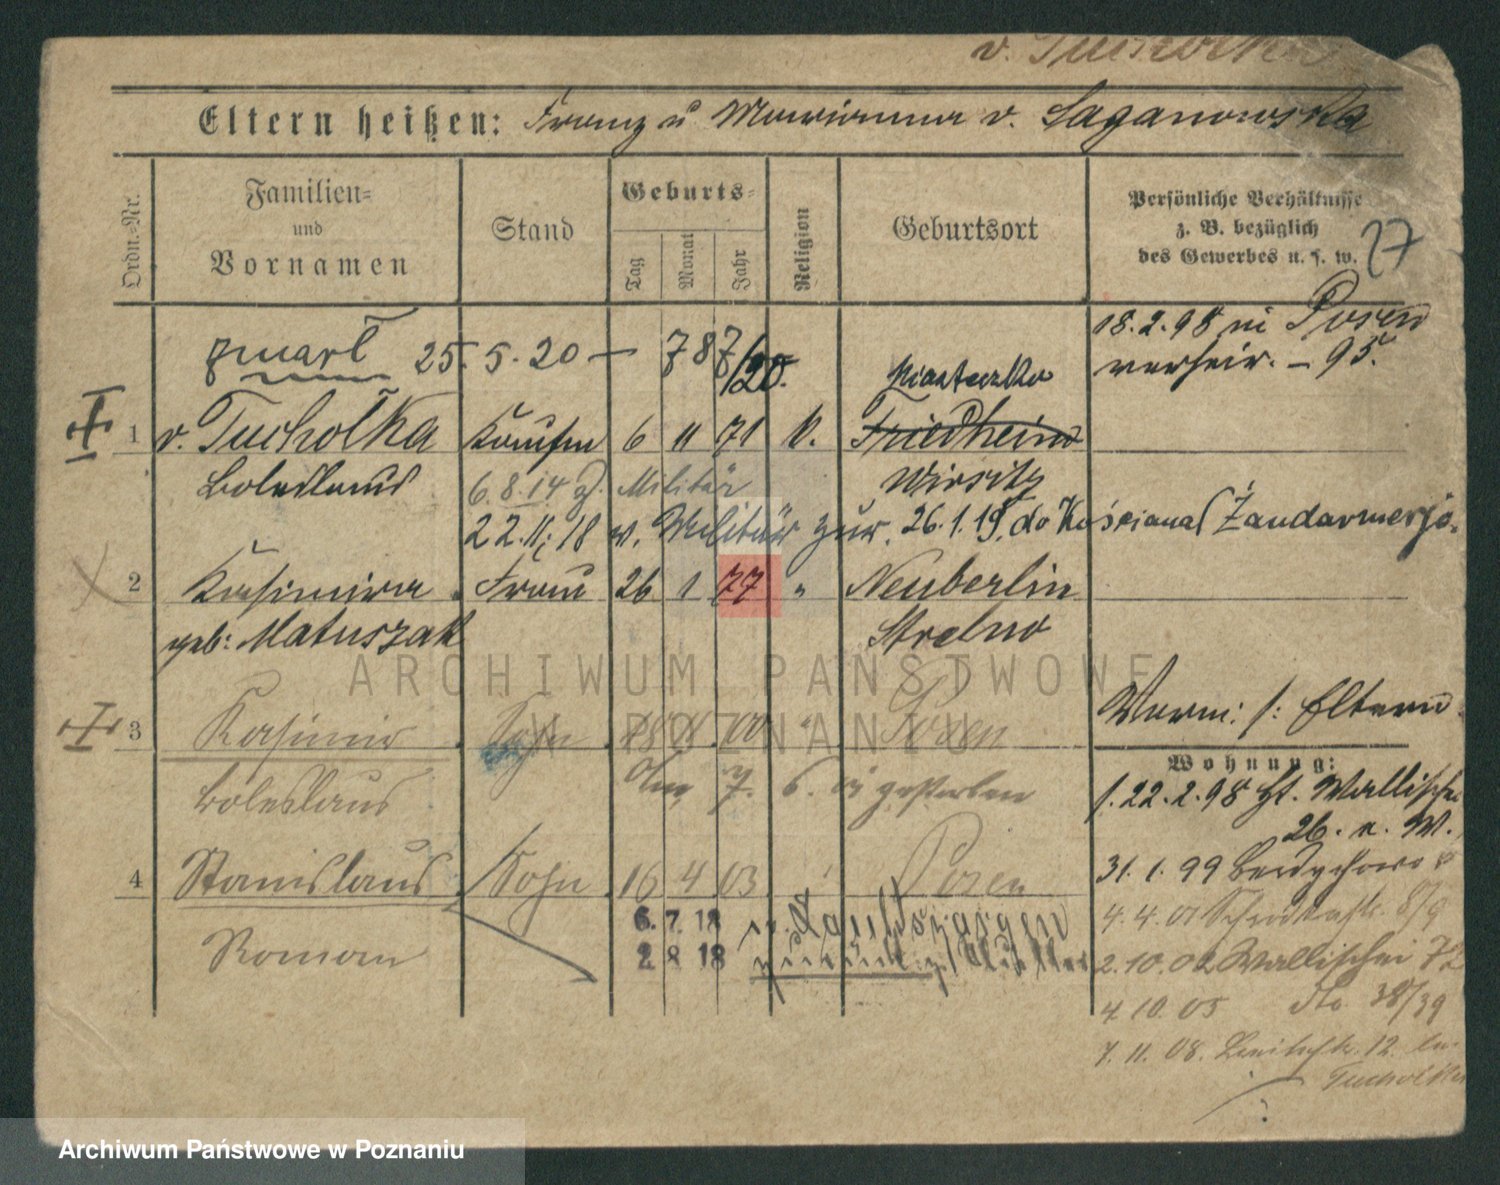 v. Tucholka
Eltern heißen: Franz u Marianna v. Saganowska
Ordn.=Nr.
Familien=
und
Vornamen
Stand
Geburts=
Tag
Monat
Jahr
Religion
Geburtsort
Persönliche Verhältnisse
z. B. bezüglich
des Gewerbes u. s. w.
27
zmarł 25. 5. 20 — 787/20.
18. 2. 98 in Posen
verheir. – 95.
Miasteczko
1 v. Tucholka Kaufm 6 11 71 k. Friedheim
Boleslaus 6. 8. 14 z. Militär Wirsitz
22. 11. 18 v. Militär zur. 26. 1. 19. do Kościana Żandarmerjo.
2 Kasimira Frau 26 1 77 " Neuberlin
geb: Matuszak Strelno
3 Kasimir Sohn 00 " Posen
Boleslaus 7. gestorben
Verm: s: Eltern
Wohnung:
s. 22. 2. 98 Wallischei
26. n. W.
31. 1. 99 Berdychowo
4 Stanislaus Sohn 16 4 03 Posen
Roman
6. 7. 18
2 8 18 zurück
4. 4. 01 8/9
2. 10. 02 Wallischei 72
4. 10. 05 dto 38/39
7. 11. 08. 12.
Tucholka
ARCHIWUM PAŃSTWOWE
W POZNANIU
Archiwum Państwowe w Poznaniu